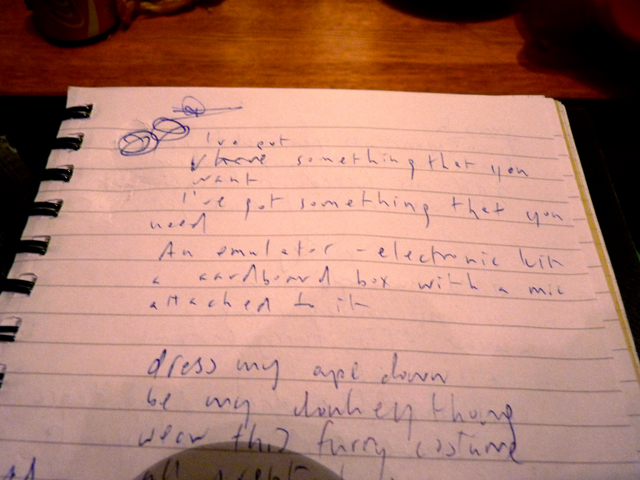 I've got
have something that you
want
I've got something that you
need
An emulator - electronic kit
a cardboard box with a mic
attached to it
dress my ape down
be my donkey
wear this furry costume
all